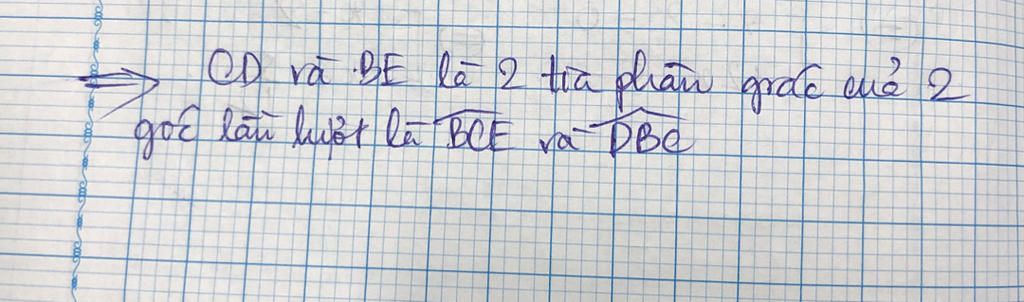 ⇒ CD và BE là 2 tia phân giác của 2
góc lần lượt là BCE và DBC